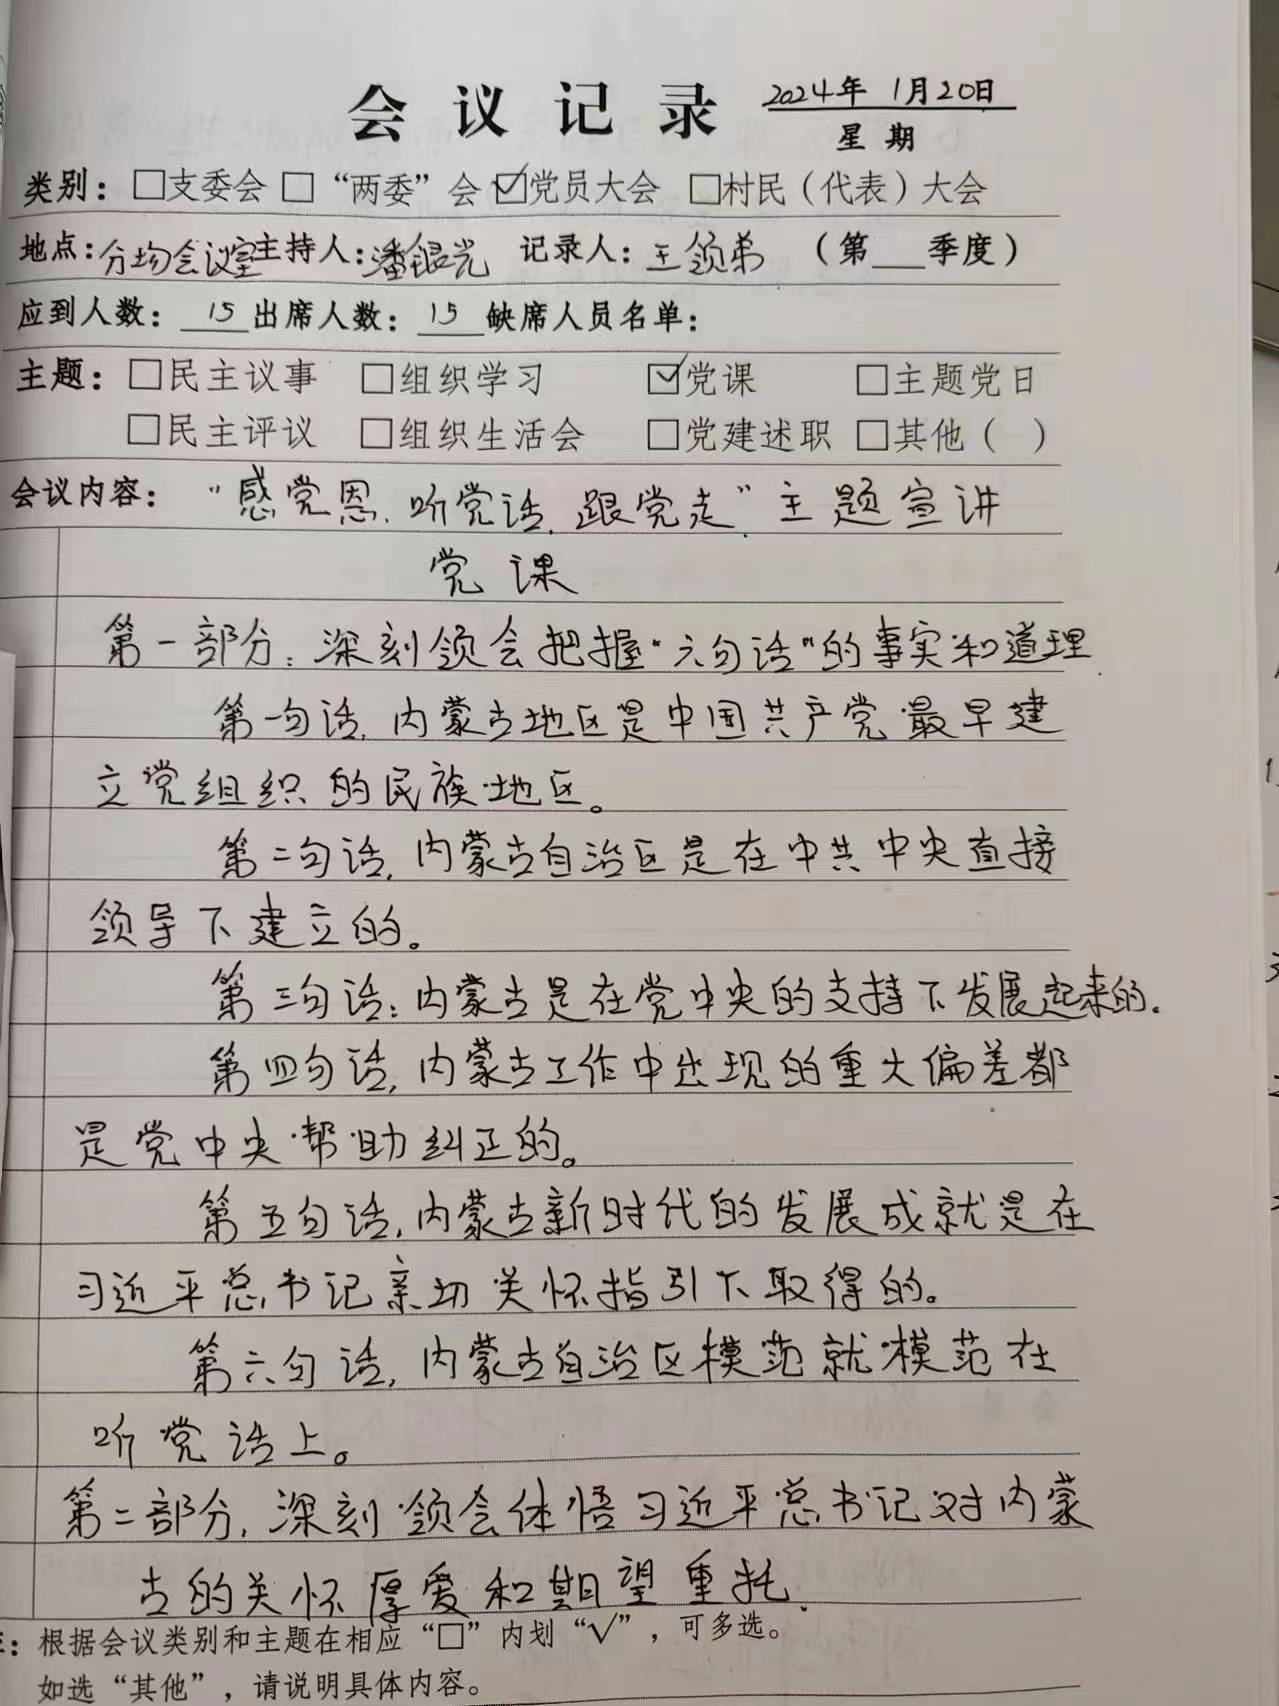 会议记录 2024年 1月20日
星期
类别：□支委会 □“两委”会 ☑党员大会 □村民（代表）大会
地点：分场会议室 主持人：潘银光 记录人：王领弟 （第___季度）
应到人数：15 出席人数：15 缺席人员名单：
主题：□民主议事 □组织学习 ☑党课 □主题党日
□民主评议 □组织生活会 □党建述职 □其他（ ）
会议内容：“感党恩、听党话、跟党走”主题宣讲
党课
第一部分：深刻领会把握“六句话”的事实和道理
第一句话，内蒙古地区是中国共产党最早建
立党组织的民族地区。
第二句话，内蒙古自治区是在中共中央直接
领导下建立的。
第三句话：内蒙古是在党中央的支持下发展起来的.
第四句话，内蒙古工作中出现的重大偏差都
是党中央帮助纠正的。
第五句话，内蒙古新时代的发展成就是在
习近平总书记亲切关怀指引下取得的。
第六句话，内蒙古自治区模范就模范在
听党话上。
第二部分，深刻领会体悟习近平总书记对内蒙
古的关怀厚爱和期望重托.
注：根据会议类别和主题在相应“□”内划“√”，可多选。
如选“其他”，请说明具体内容。